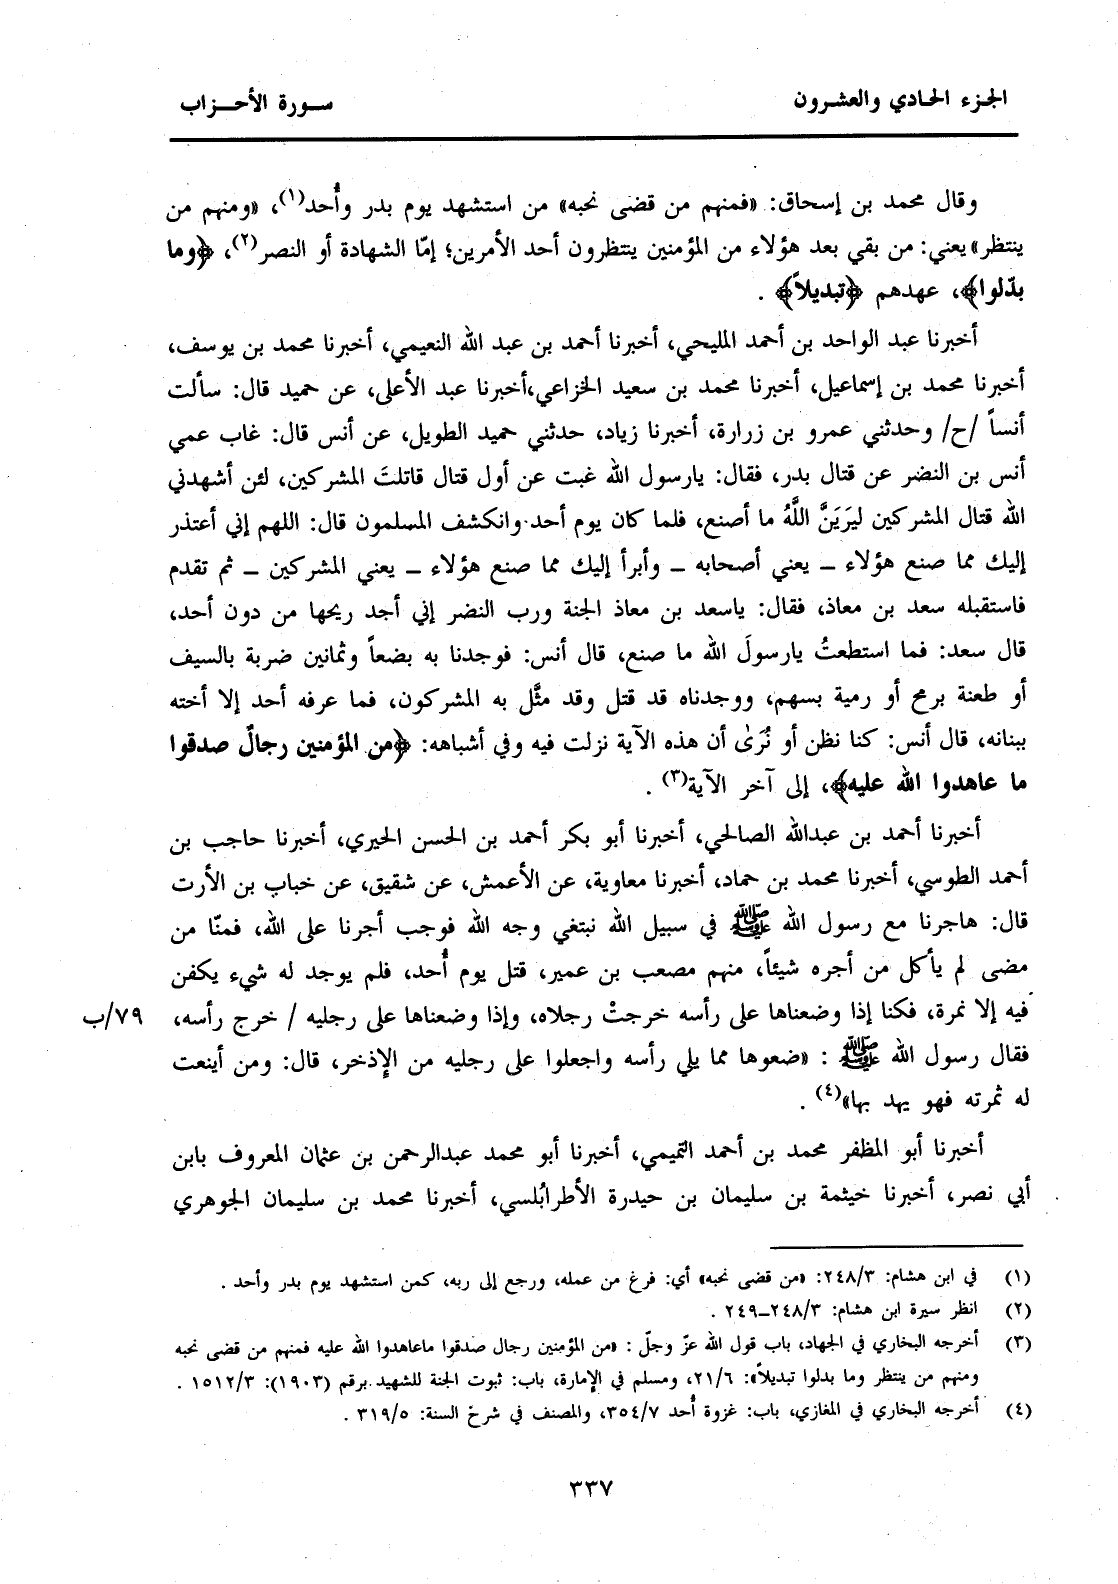 الجزء الحادي والعشرون
سورة الأحزاب
وقال محمد بن إسحاق: «فمنهم من قضى نحبه» من استشهد يوم بدر وأُحد(١)، «ومنهم من
ينتظر» يعني: من بقي بعد هؤلاء من المؤمنين ينتظرون أحد الأمرين؛ إمّا الشهادة أو النصر(٢)، ﴿وما
بدّلوا﴾، عهدهم ﴿تبديلاً﴾ .
أخبرنا عبد الواحد بن أحمد المليحي، أخبرنا أحمد بن عبد الله النعيمي، أخبرنا محمد بن يوسف،
أخبرنا محمد بن إسماعيل، أخبرنا محمد بن سعيد الخزاعي،أخبرنا عبد الأعلى، عن حميد قال: سألت
أنساً /ح/ وحدثني عمرو بن زرارة، أخبرنا زياد، حدثني حميد الطويل، عن أنس قال: غاب عمي
أنس بن النضر عن قتال بدر، فقال: يارسول الله غبت عن أول قتال قاتلتَ المشركين، لئن أشهدني
الله قتال المشركين ليَرَيَنَّ اللَّهُ ما أصنع، فلما كان يوم أحد وانكشف المسلمون قال: اللهم إني أعتذر
إليك مما صنع هؤلاء ــ يعني أصحابه ــ وأبرأ إليك مما صنع هؤلاء ــ يعني المشركين ــ ثم تقدم
فاستقبله سعد بن معاذ، فقال: ياسعد بن معاذ الجنة ورب النضر إني أجد ريحها من دون أحد،
قال سعد: فما استطعتُ يارسولَ الله ما صنع، قال أنس: فوجدنا به بضعاً وثمانين ضربة بالسيف
أو طعنة برمح أو رمية بسهم، ووجدناه قد قتل وقد مثَّل به المشركون، فما عرفه أحد إلا أخته
ببنانه، قال أنس: كنا نظن أو نُرَىٰ أن هذه الآية نزلت فيه وفي أشباهه: ﴿من المؤمنين رجالٌ صدقوا
ما عاهدوا الله عليه﴾، إلى آخر الآية(٣) .
أخبرنا أحمد بن عبدالله الصالحي، أخبرنا أبو بكر أحمد بن الحسن الحيري، أخبرنا حاجب بن
أحمد الطوسي، أخبرنا محمد بن حماد، أخبرنا معاوية، عن الأعمش، عن شقيق، عن خباب بن الأرت
قال: هاجرنا مع رسول الله ﷺ في سبيل الله نبتغي وجه الله فوجب أجرنا على الله، فمنّا من
مضى لم يأكل من أجره شيئاً، منهم مصعب بن عمير، قتل يوم أُحد، فلم يوجد له شيء يكفن
فيه إلا نمرة، فكنا إذا وضعناها على رأسه خرجتْ رجلاه، وإذا وضعناها على رجليه / خرج رأسه،
٧٩/ب
فقال رسول الله ﷺ : «ضعوها مما يلي رأسه واجعلوا على رجليه من الإذخر، قال: ومن أينعت
له ثمرته فهو يهد بها»(٤) .
أخبرنا أبو المظفر محمد بن أحمد التميمي، أخبرنا أبو محمد عبدالرحمن بن عثمان المعروف بابن
أبي نصر، أخبرنا خيثمة بن سليمان بن حيدرة الأطرابُلسي، أخبرنا محمد بن سليمان الجوهري
(١) في ابن هشام: ٢٤٨/٣: «من قضى نحبه» أي: فرغ من عمله، ورجع إلى ربه، كمن استشهد يوم بدر وأحد .
(٢) انظر سيرة ابن هشام: ٢٤٨/٣ــ٢٤٩ .
(٣) أخرجه البخاري في الجهاد، باب قول الله عزّ وجلّ : «من المؤمنين رجال صدقوا ماعاهدوا الله عليه فمنهم من قضى نحبه
ومنهم من ينتظر وما بدلوا تبديلاً»: ٢١/٦، ومسلم في الإمارة، باب: ثبوت الجنة للشهيد برقم (١٩٠٣): ١٥١٢/٣ .
(٤) أخرجه البخاري في المغازي، باب: غزوة أُحد ٣٥٤/٧، والمصنف في شرح السنة: ٣١٩/٥ .
٣٣٧